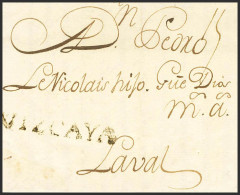 A Dn Pedro
Le Nicolais hijo. Gûe Dios
m. a.
VIZCAYA
Laval